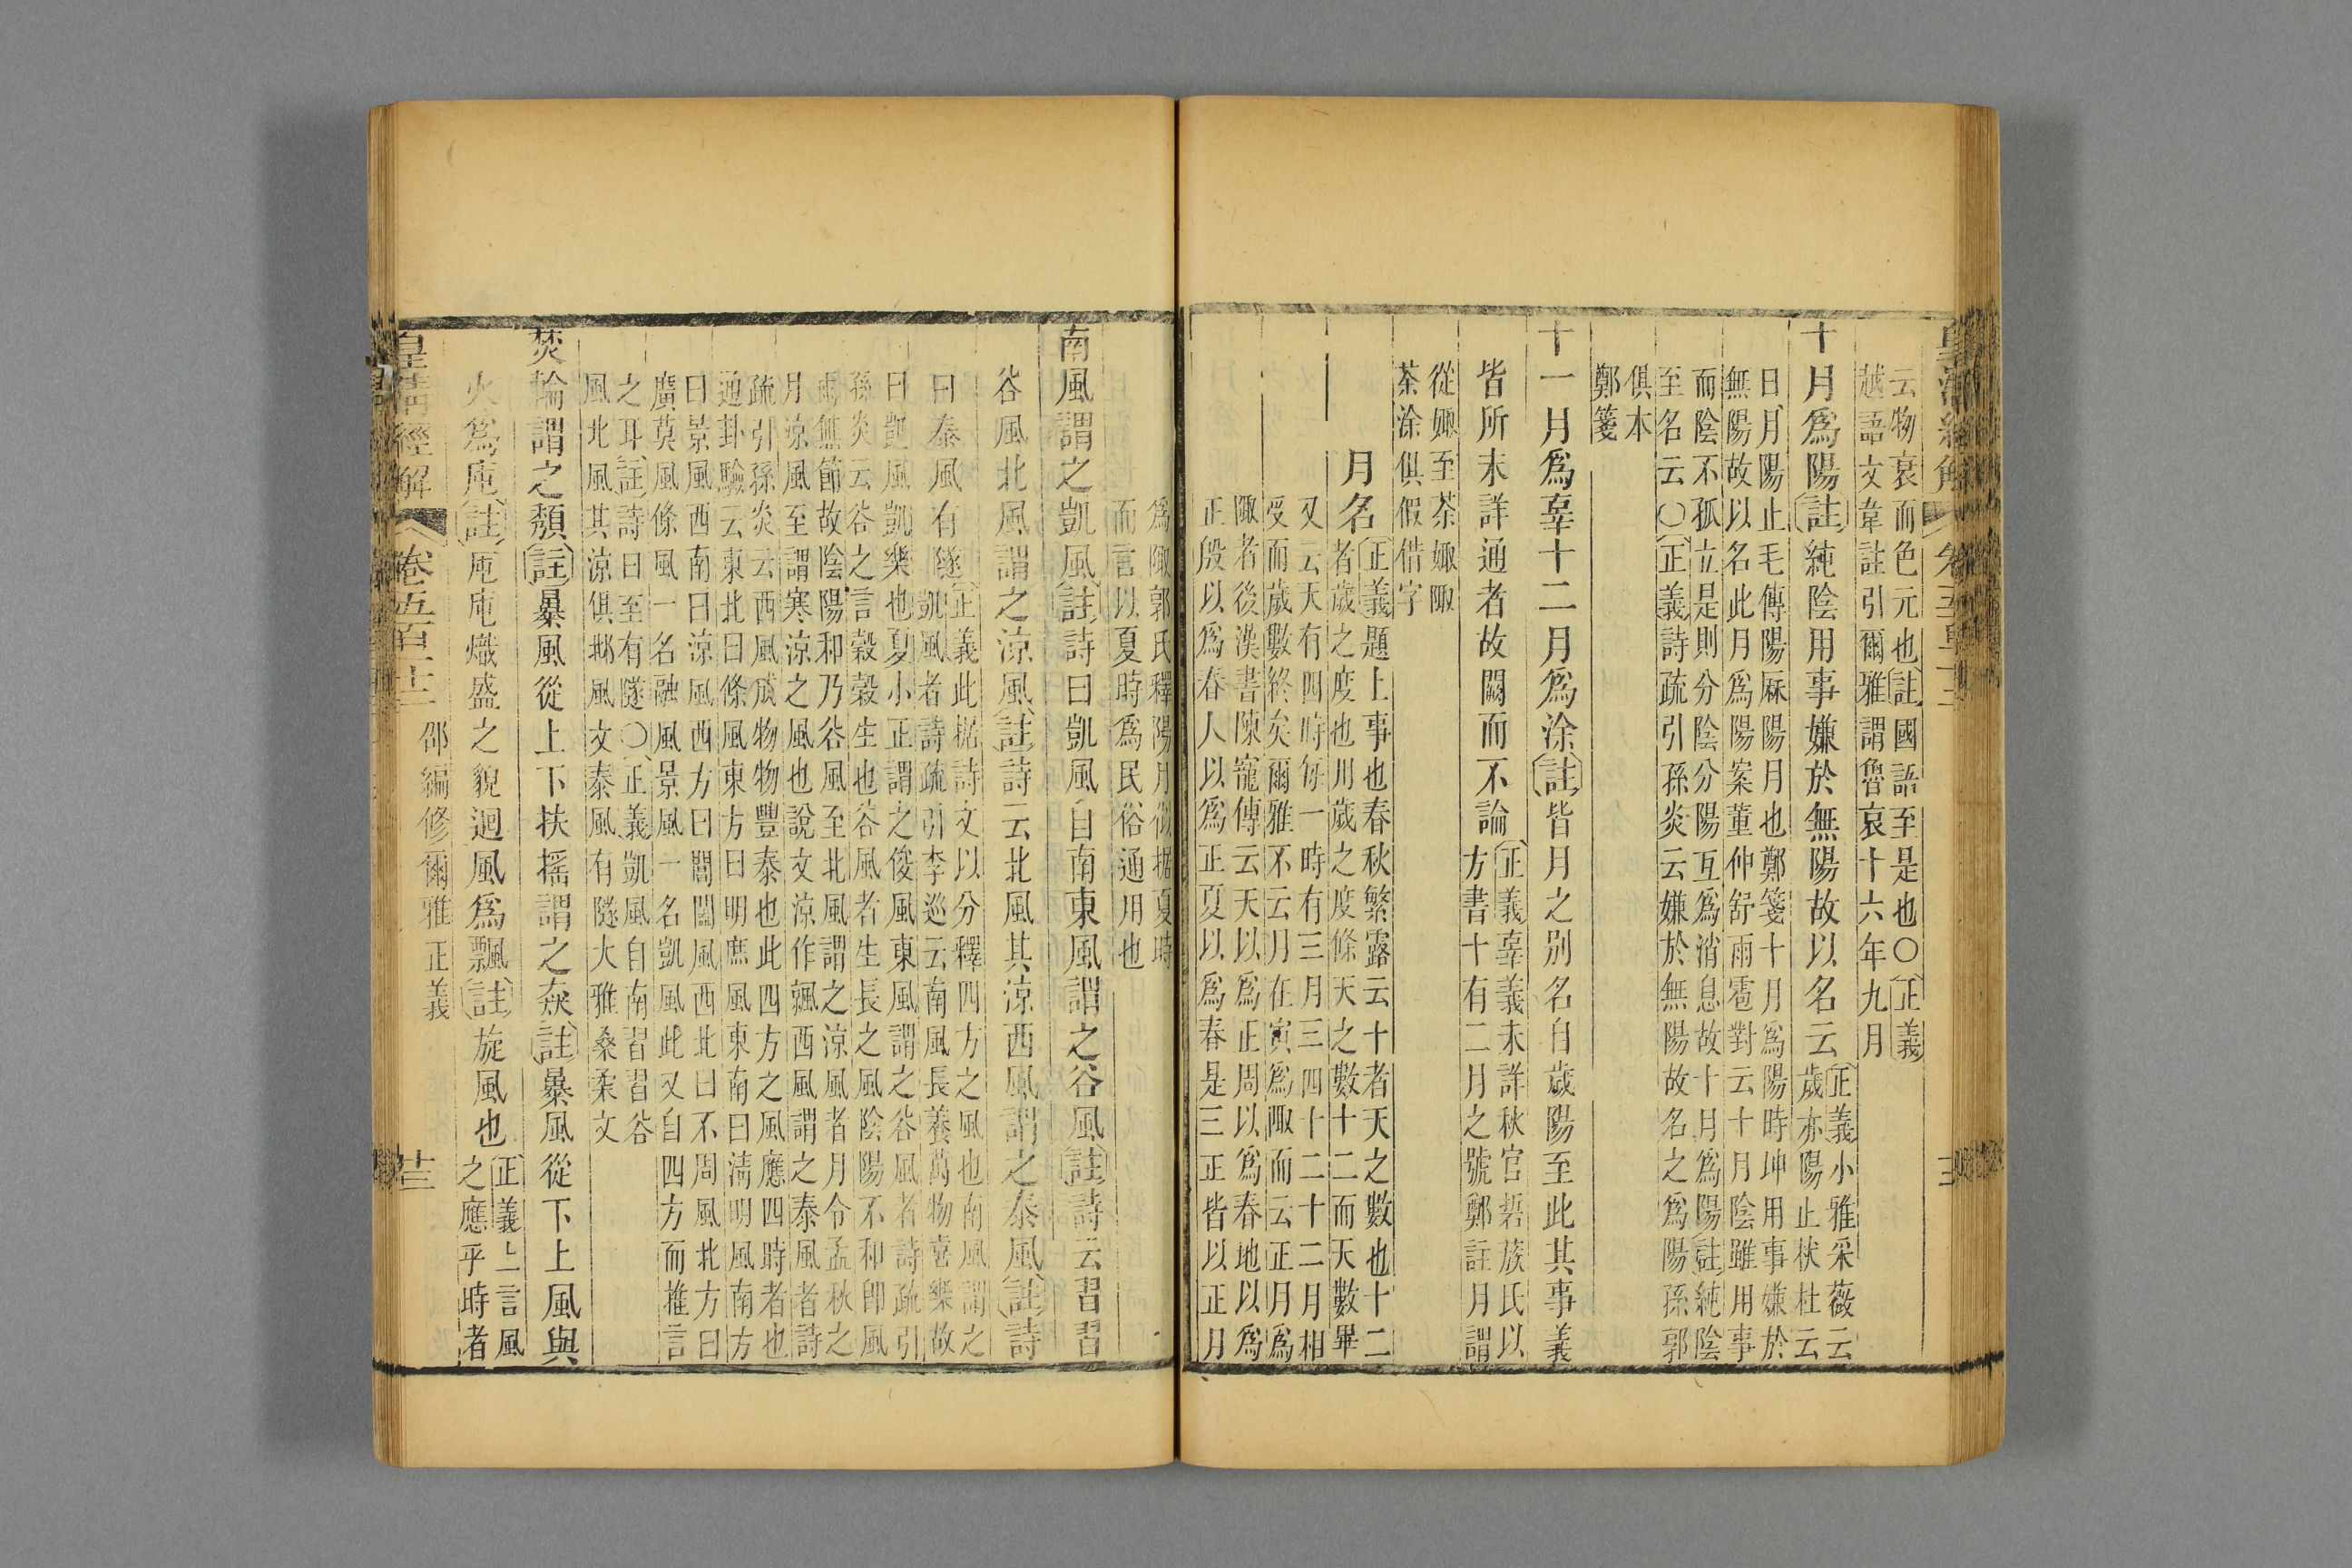 云物哀而色元也註國語至是也〇正義
越語文韋註引爾雅謂魯哀十六年九月
十月爲陽註純陰用事嫌於無陽故以名云
正義小雅采薇云
歲亦陽止杕杜云
日月陽止毛傳陽厤陽月也鄭箋十月爲陽時坤用事嫌於
無陽故以名此月爲陽案董仲舒雨雹對云十月陰雖用事
而陰不孤立是則分陰分陽互爲消息故十月爲陽註純陰
至名云〇正義詩疏引孫炎云嫌於無陽故名之爲陽孫郭
俱本
鄭箋
十一月爲辜十二月爲涂註皆月之别名自歲陽至此其事義
皆所未詳通者故闕而不論
正義辜義未詳秋官硩蔟氏以
方書十有二月之號鄭註月謂
從娵至荼娵陬
荼涂俱假借字
月名
正義題上事也春秋繁露云十者天之數也十二
者歲之度也用歲之度條天之數十二而天數畢
又云天有四時每一時有三月三四十二十二月相
受而歲數終矣爾雅不云月在寅爲陬而云正月爲
陬者後漢書陳寵傳云天以爲正周以爲春地以爲
正殷以爲春人以爲正夏以爲春是三正皆以正月
爲陬郭氏釋陽月俶据夏時
而言以夏時爲民俗通用也
南風謂之凱風註詩曰凱風自南東風謂之谷風註詩云習習
谷風北風謂之涼風註詩云北風其涼西風謂之泰風註詩
曰泰風有隧
正義此据詩文以分釋四方之風也南風謂之
凱風者詩疏引李巡云南風長養萬物喜樂故
曰凱風凱樂也夏小正謂之俊風東風謂之谷風者詩疏引
孫炎云谷之言穀穀生也谷風者生長之風陰陽不和卽風
雨無節故陰陽和乃谷風至北風謂之涼風者月令孟秋之
月涼風至謂寒涼之風也說文涼作飆西風謂之泰風者詩
疏引孫炎云西風成物物豐泰也此四方之風應四時者也
通卦驗云東北曰條風東方曰明庶風東南曰淸明風南方
曰景風西南曰涼風西方曰閶闔風西北曰不周風北方曰
廣莫風條風一名融風景風一名凱風此又自四方而推言
之耳註詩曰至有隧〇正義凱風自南習習谷
風北風其涼俱邶風文泰風有隧大雅桑柔文
焚輪謂之頹註暴風從上下扶搖謂之猋註暴風從下上風與
火爲庉註庉庉熾盛之貌迴風爲飄註旋風也
正義上言風
之應乎時者
皇淸經解
卷五百十二
邵編修爾雅正義